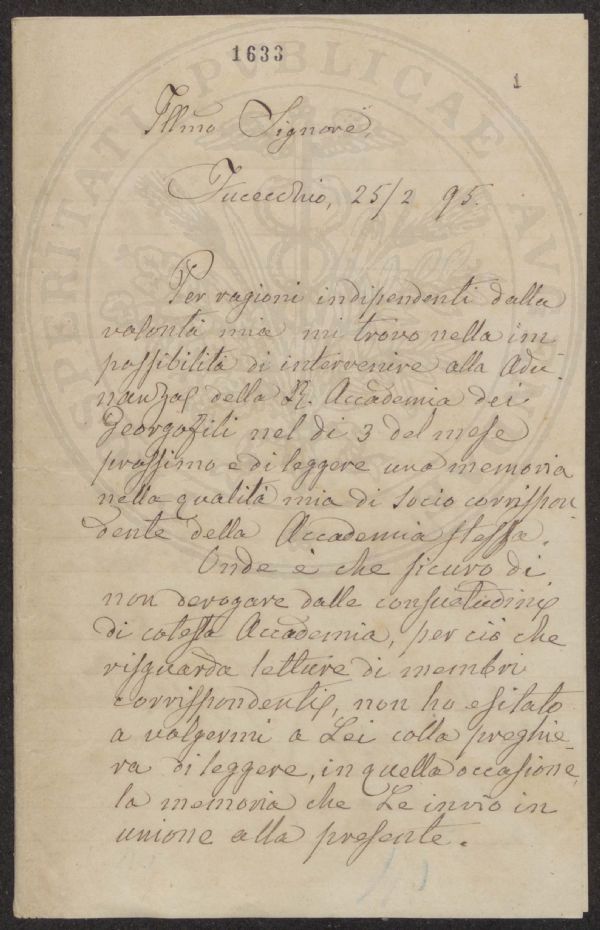 1633
1
PERITATI PVBLICAE AVG
Illmo Signore,
Fucecchio, 25/2 95.
Per ragioni indipendenti dalla
volontà mia mi trovo nella im
possibilità di intervenire alla Adu-
nanza della R. Accademia dei
Georgofili nel dì 3 del mese
prossimo e di leggere una memoria
nella qualità mia di socio corrispon
dente della Accademia stessa.
Onde è che sicuro di
non derogare dalle consuetudini
di cotesta Accademia, per ciò che
risguarda letture di membri
corrispondenti, non ho esitato
a volgermi a Lei colla preghie-
ra di leggere, in quella occasione,
la memoria che Le invio in
unione alla presente.